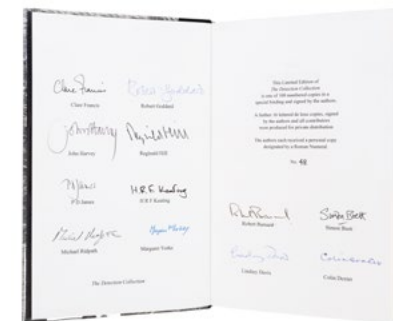 Clare Francis
Robert Goddard
Clare Francis
Robert Goddard
John Harvey
Reginald Hill
John Harvey
Reginald Hill
P D James
H.R.F. Keating
P D James
H R F Keating
Michael Ridpath
Margaret Yorke
Michael Ridpath
Margaret Yorke
The Detection Collection
This Limited Edition of
The Detection Collection
is one of 100 numbered copies in a
special binding and signed by the authors.
A further 26 lettered de luxe copies, signed
by the authors and all contributors
were produced for private distribution
The authors each received a personal copy
designated by a Roman Numeral
No. 48
Robert Barnard
Simon Brett
Robert Barnard
Simon Brett
Lindsey Davis
Colin Dexter
Lindsey Davis
Colin Dexter